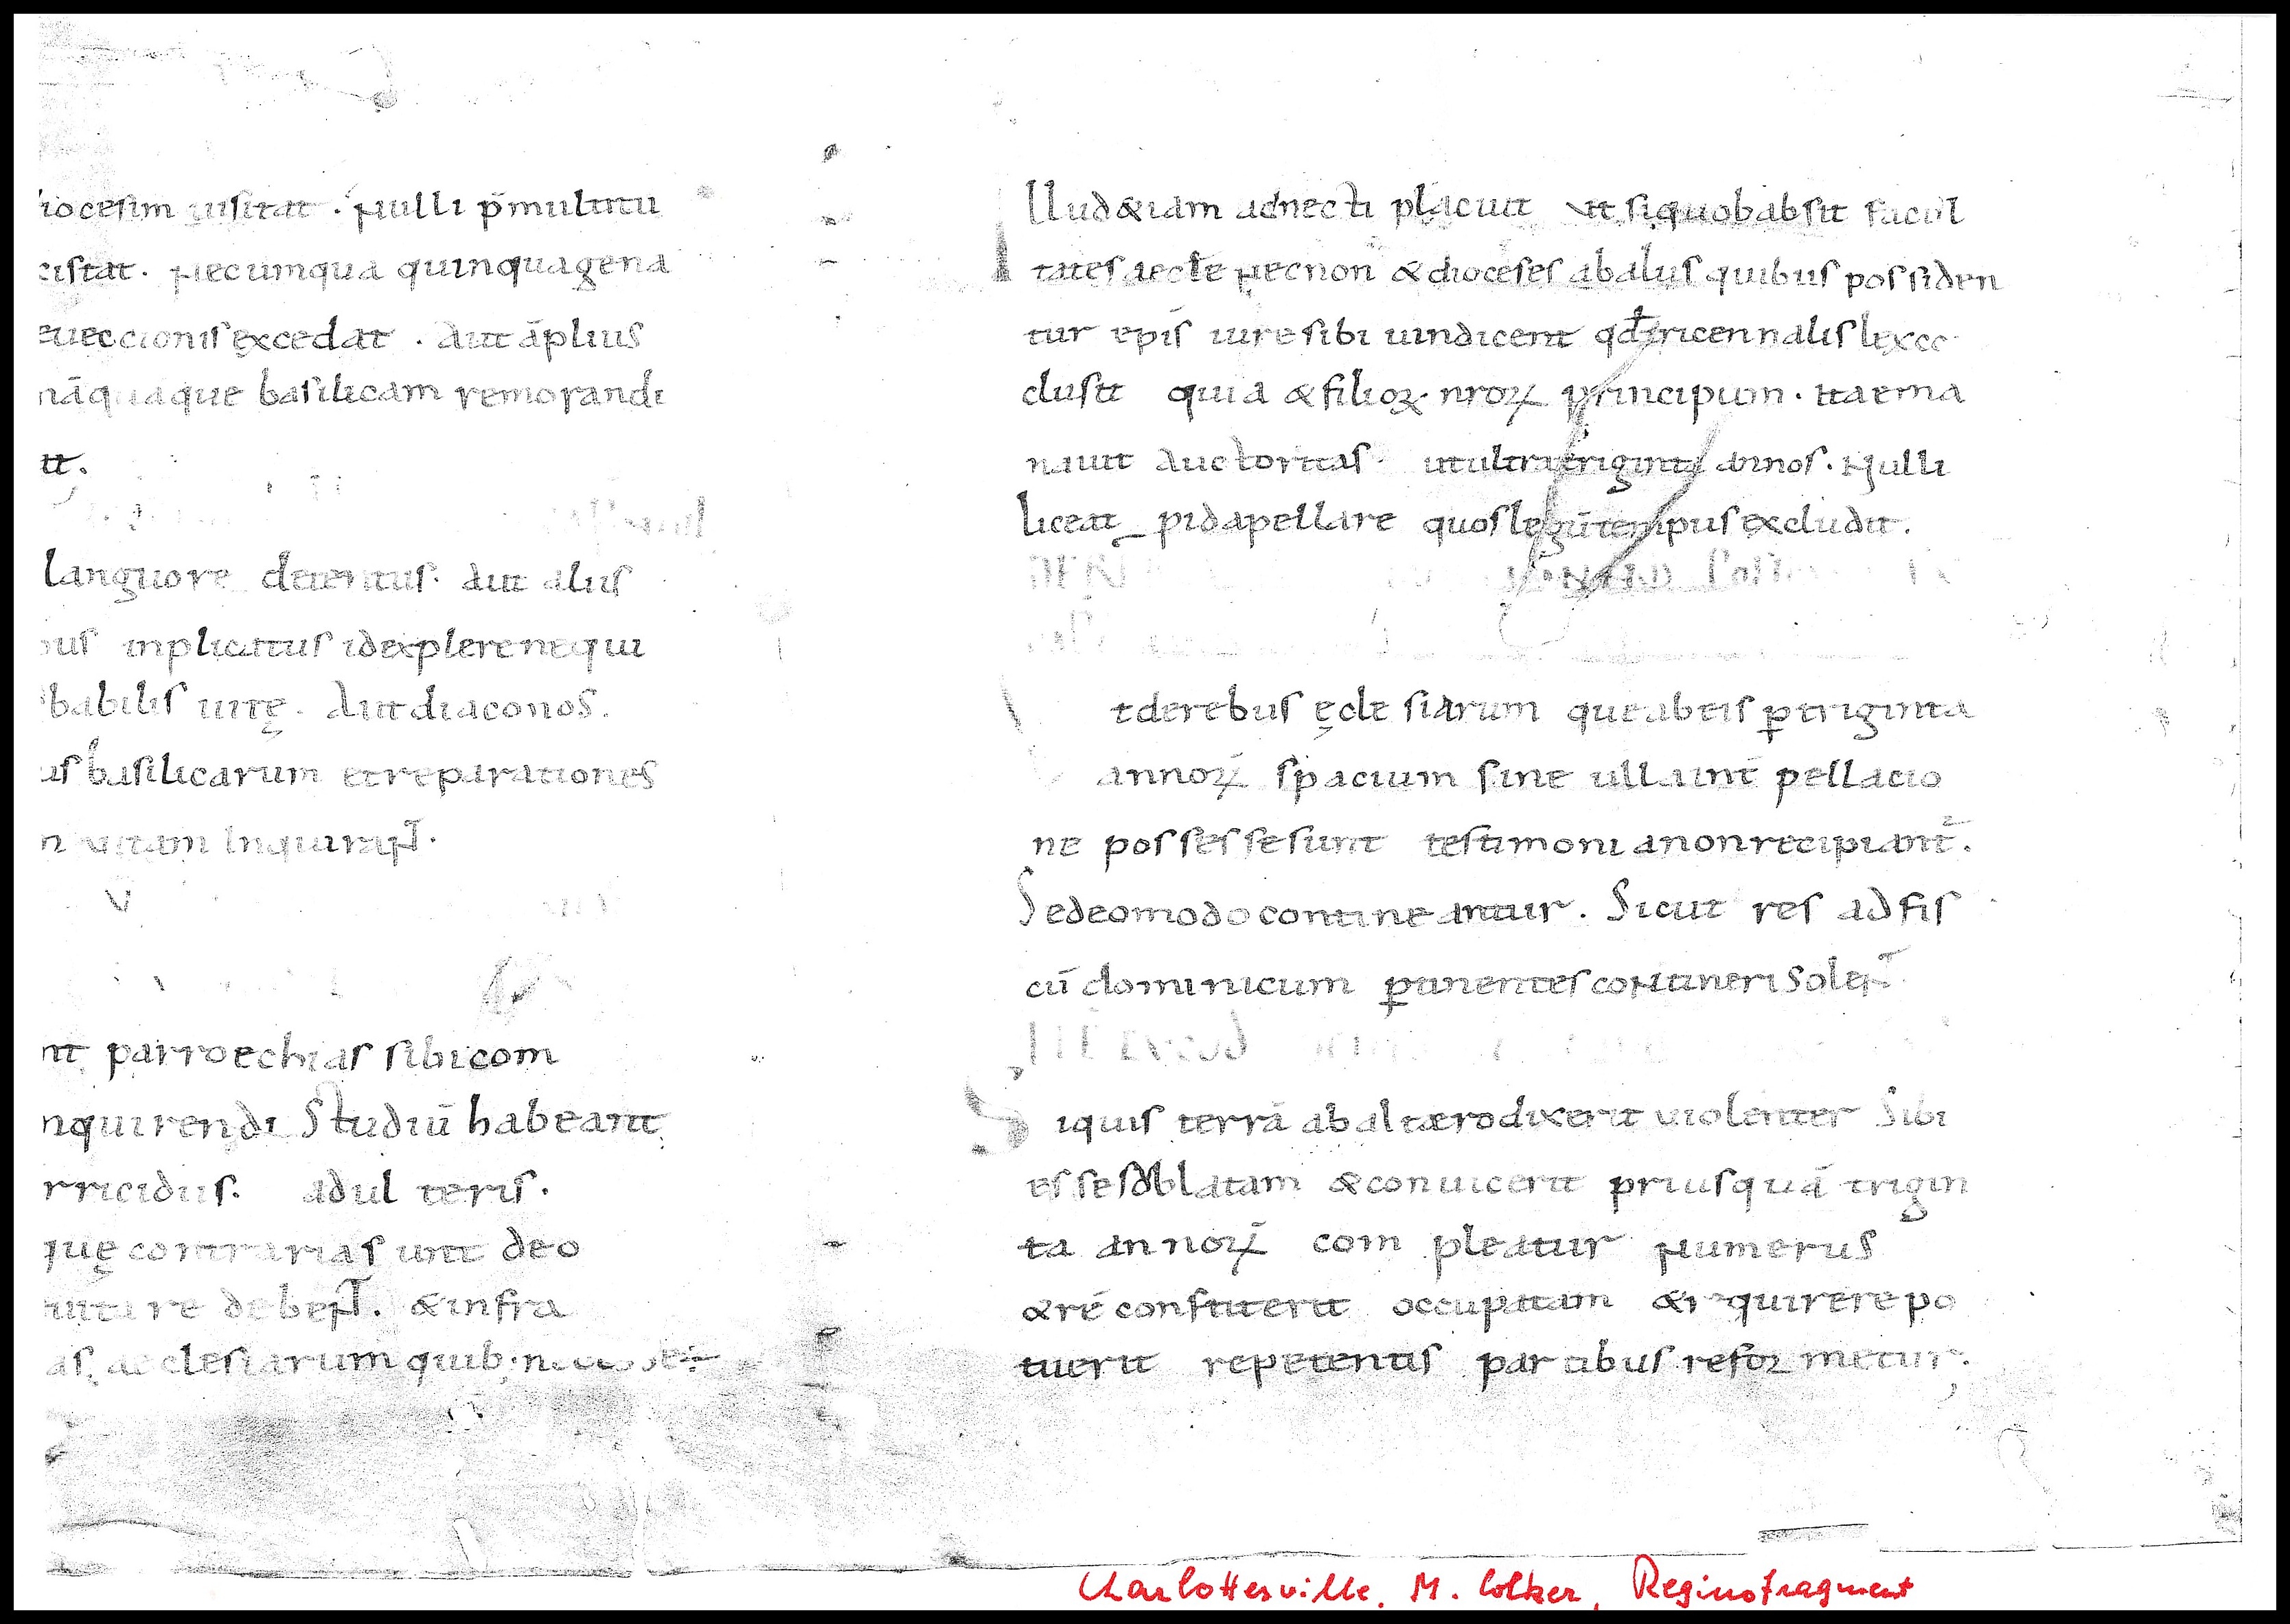 iocesim uisitat . Nulli p̄ multitu
cistat. Necumqua quinquagena
eueccionis excedat . Aut āplius
nāquaque basilicam remorandi
it.
languore detentus. Aut aliis
bus inplicatus id explere nequi
babilis uitę. Aut diaconos.
us basilicarum et reparationes
n uitam inquirant.
nt parroechias sibi com
nquirendi Studiū habeant
rricidiis. adulteris.
quę contraria sunt deo
uitare debent. & infra
as. aecclesiarum quib;
Illud & iam adnecti placuit ut si quob absit facul
tates aecl̄e Necnon & dioceses ab aliis quibus possiden
tur ep̄is iure sibi uindicent qđ tricennalis lex cc
clusit quia & filioꝝ. nroꝝ principum. ita ema
nauit Auctoritas. ut ultra triginta annos. Nulli
liceat pid apellare quos legū tempus excludit.
t de rebus ęcle siarum que ab eis ꝑ triginta
annoꝝ spacium sine ulla int̄pellacio
ne possesse sunt testimonia non recipiant̄.
Sed eo modo contineantur. Sicut res ad fis
cū dominicum ꝑtinentes contineri Solent
Si quis terrā ab altæro dixerit violenter Sibi
esse sublatam & conuicerit priusquā trigin
ta annoꝝ compleatur Numerus
& rē constiterit occupatam & requirere po
tuerit repetentis partibus reformetur.
Charlottesville, M. Colker, Reginofragment